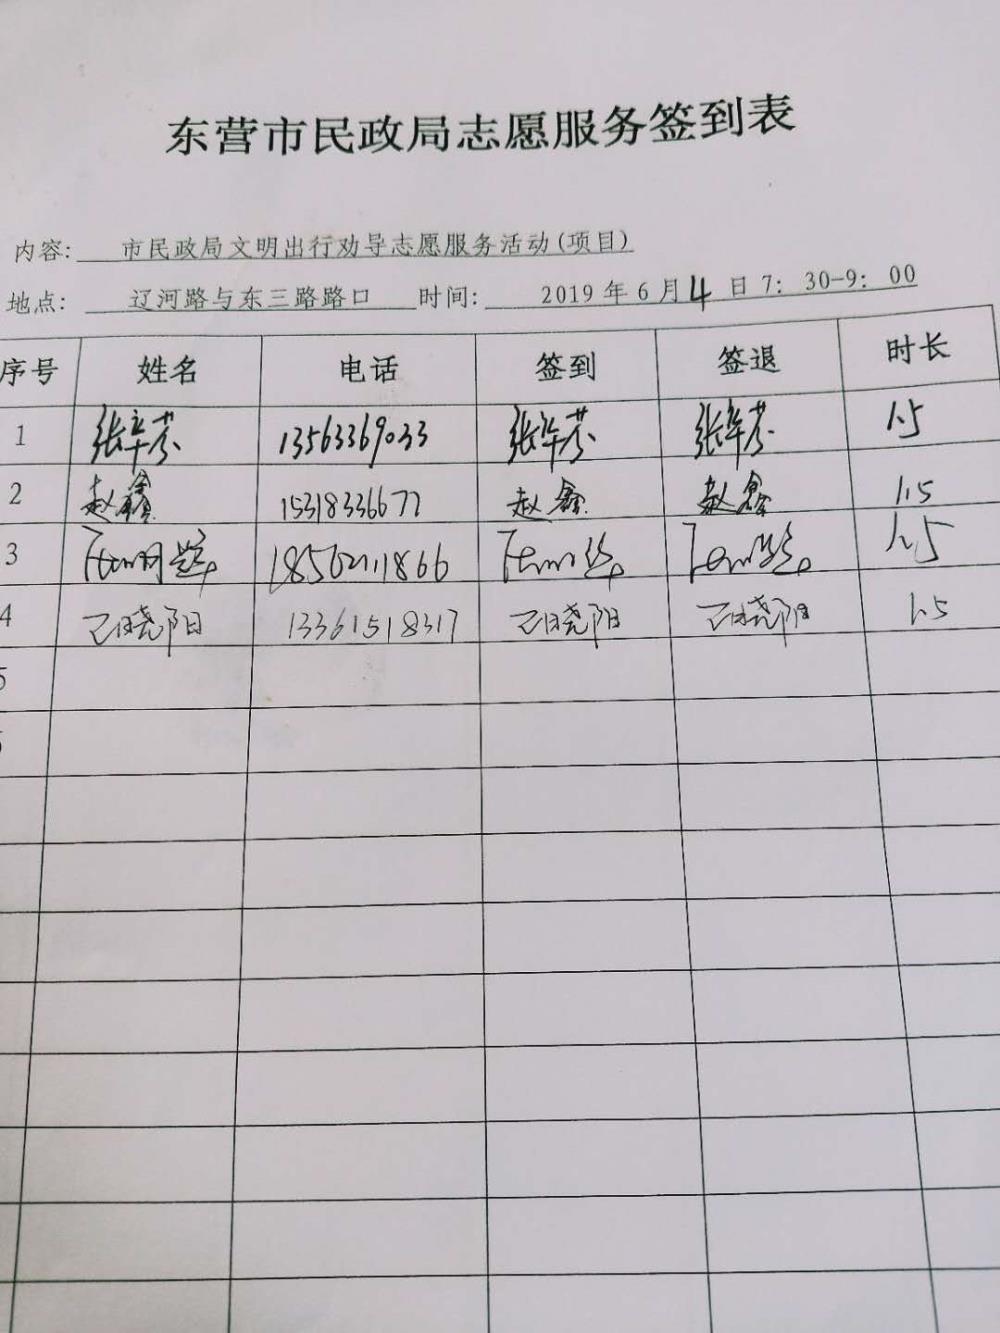 东营市民政局志愿服务签到表
内容: 市民政局文明出行劝导志愿服务活动(项目)
地点: 辽河路与东三路路口 时间: 2019年6月4日7:30-9:00
序号 姓名 电话 签到 签退 时长
1 13563369033 1.5
2 赵鑫 15318336677 赵鑫 赵鑫 1.5
3 1.5
4 晓阳 13361518317 晓阳 晓阳 1.5
5